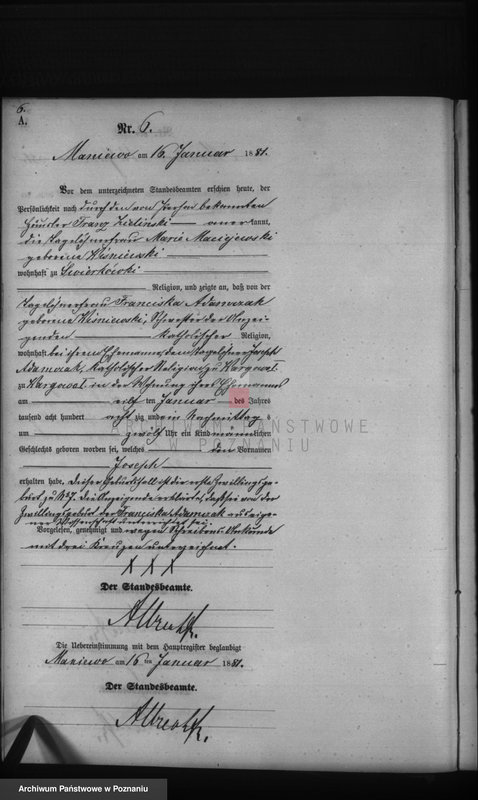 6.
A.
Nr. 6.
Maniewo am 16 Januar 1881.
Vor dem unterzeichneten Standesbeamten erschien heute, der
Persönlichkeit nach durch den von Person bekannten
Häusler Franz Zielinski anerkannt,
die Tagelöhnerfrau Marie Maciejewski
geborene Wisniewski
wohnhaft zu
Religion, und zeigte an, daß von der
Tagelöhnerfrau Franciska Adamczak
geborene Wisniewski, Schwester der Anzei-
genden katholischer Religion,
wohnhaft bei ihrem Ehemanne dem Tagelöhner Joseph
Adamczak, katholischer Religion zu Wargowo
zu Wargowo in der Wohnung ihres Ehemannes
am elf ten Januar des Jahres
tausend acht hundert achtzig und ein Nachmittags
um zwölf Uhr ein Kind männlichen
Geschlechts geboren worden sei, welches den Vornamen
Joseph
erhalten habe. Dieser Geburtsfall ist die erste Zwillingsge-
burt zu № 7. Die Anzeigende erklärte, daß sie von der
Zwillingsgeburt der Franciska Adamczak aus eige-
ner Wissenschaft unterrichtet sei.
Vorgelesen, genehmigt und wegen Schreibens Unkunde
mit drei Kreuzen unterzeichnet.
X X X
Der Standesbeamte.
Albrecht.
Die Uebereinstimmung mit dem Hauptregister beglaubigt
Maniewo am 16 ten Januar 1881.
Der Standesbeamte.
Albrecht.
ARCHIWUM PAŃSTWOWE
W POZNANIU
Archiwum Państwowe w Poznaniu